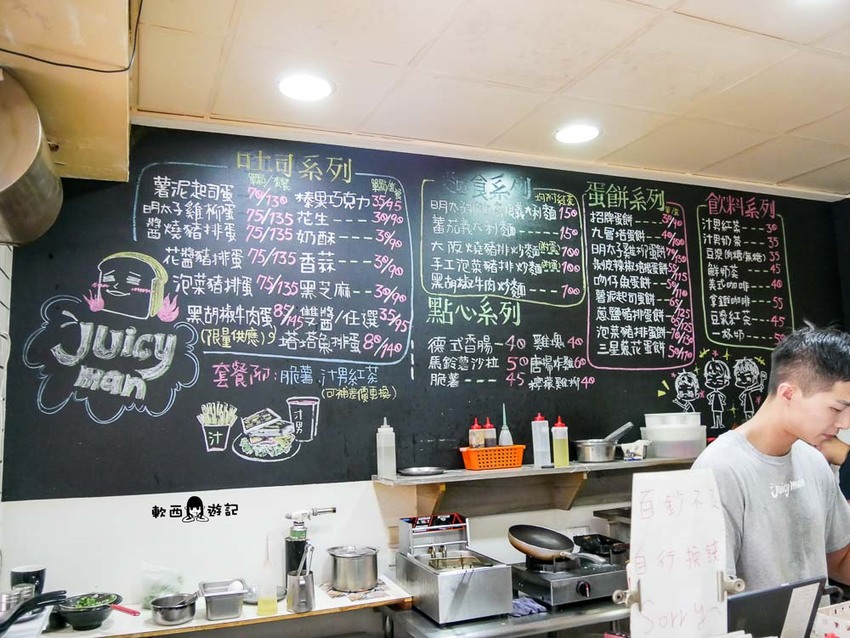 吐司系列
單點/套餐
薯泥起司蛋 70/130
明太子雞柳蛋 75/135
醬燒豬排蛋 75/135
花醬豬排蛋 75/135
泡菜豬排蛋 75/135
黑胡椒牛肉蛋 85/145
(限量供應)
單點/套餐
榛果巧克力 35/45
花生 30/40
奶酥 30/40
香蒜 30/40
黑芝麻 30/40
雙醬/任選 35/45
塔塔魚排蛋 80/140
套餐附:脆薯.汁男紅茶
(可補差價更換)
Juicy
man
汁
汁男
食系列
大阪燒豬排炒麵
手工泡菜豬排炒麵
黑胡椒牛肉炒麵
點心系列
德式香腸 40
馬鈴薯沙拉 50
脆薯 45
雞塊 40
唐揚炸雞 60
檸檬雞柳 40
蛋餅系列
招牌蛋餅
九層塔蛋餅
明太子雞柳蛋餅
吻仔魚蛋餅
薯泥起司蛋餅
蔥鹽豬排蛋餅
泡菜豬排蛋餅
三星蔥花蛋餅
飲料系列
汁男紅茶 30
汁男奶茶 35
豆漿(有糖/無糖) 30
鮮奶茶 45
美式咖啡 40
拿鐵咖啡 55
豆漿紅茶 45
軟西遊記
Juicy man
自行
Sorry~